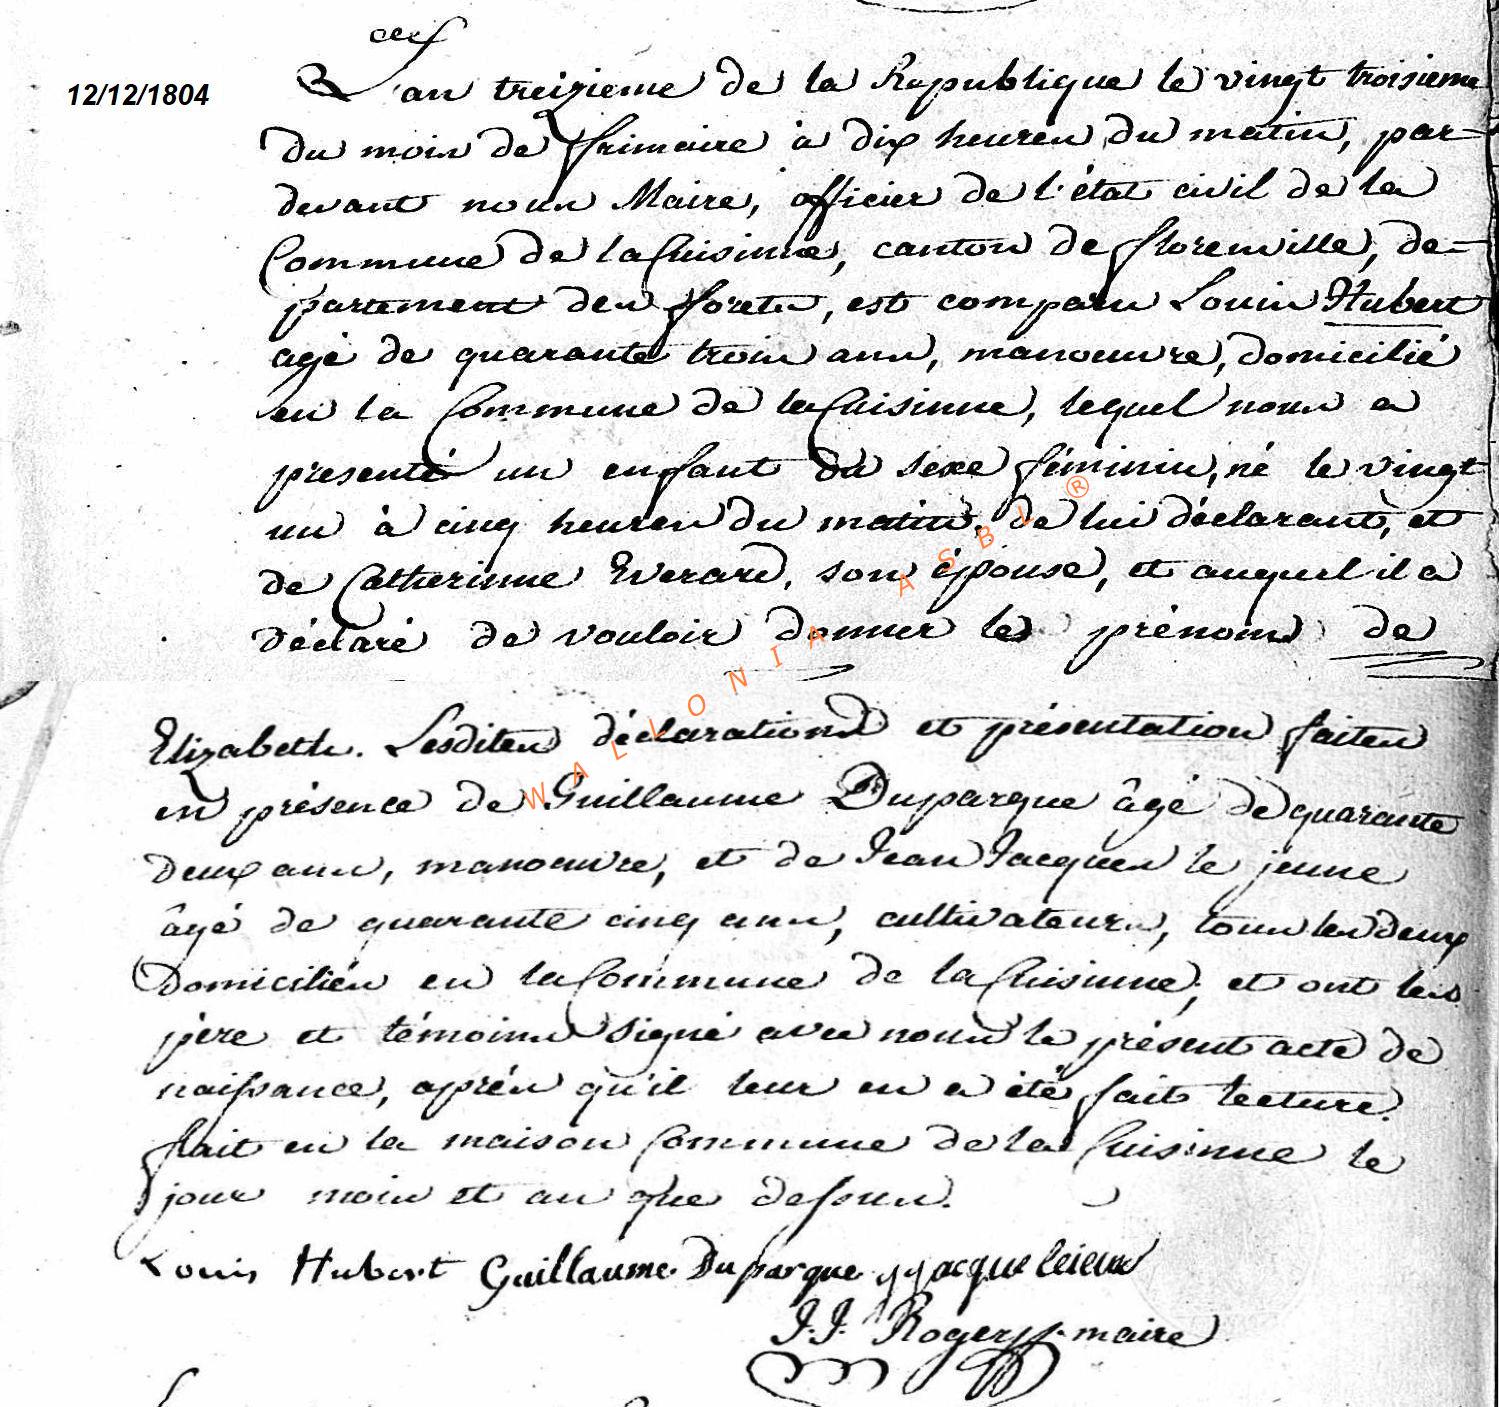 12/12/1804
L'an treizieme de la Republique le vingt troisieme
du mois de frimaire à dix heures du matin, par-
devant nous Maire, officier de l'état civil de la
Commune de laCuisinne, canton de florenville, de-
partement des forets, est comparu Louis Hubert
agé de quarante trois ans, manoeuvre, domicilié
en la Commune de laCuisinne, lequel nous a
presenté un enfant du sexe féminin, né le vingt
un à cinq heures du matin, de lui déclarant, et
de Catherinne Everard, son épouse, et auquel il a
déclaré de vouloir donner les prénoms de
Elizabeth. Lesdites déclarations et présentation faites
en présence de Guillaume Duparque âgé de quarante
deux ans, manoeuvre, et de Jean Jacques le jeune
âgé de quarante cinq ans, cultivateurs, tous les deux
Domiciliés en la Commune de laCuisinne, et ont les
père et témoins signé avec nous le présent acte de
naissance, aprés qu'il leur en a été fait lecture.
fait en la maison Commune de la Cuisinne le
jour mois et an que dessus.
Louis Hubert Guillaume Duparque jjacque leieun
J.J. Rogerss. maire
WALLONIA ASBL ®